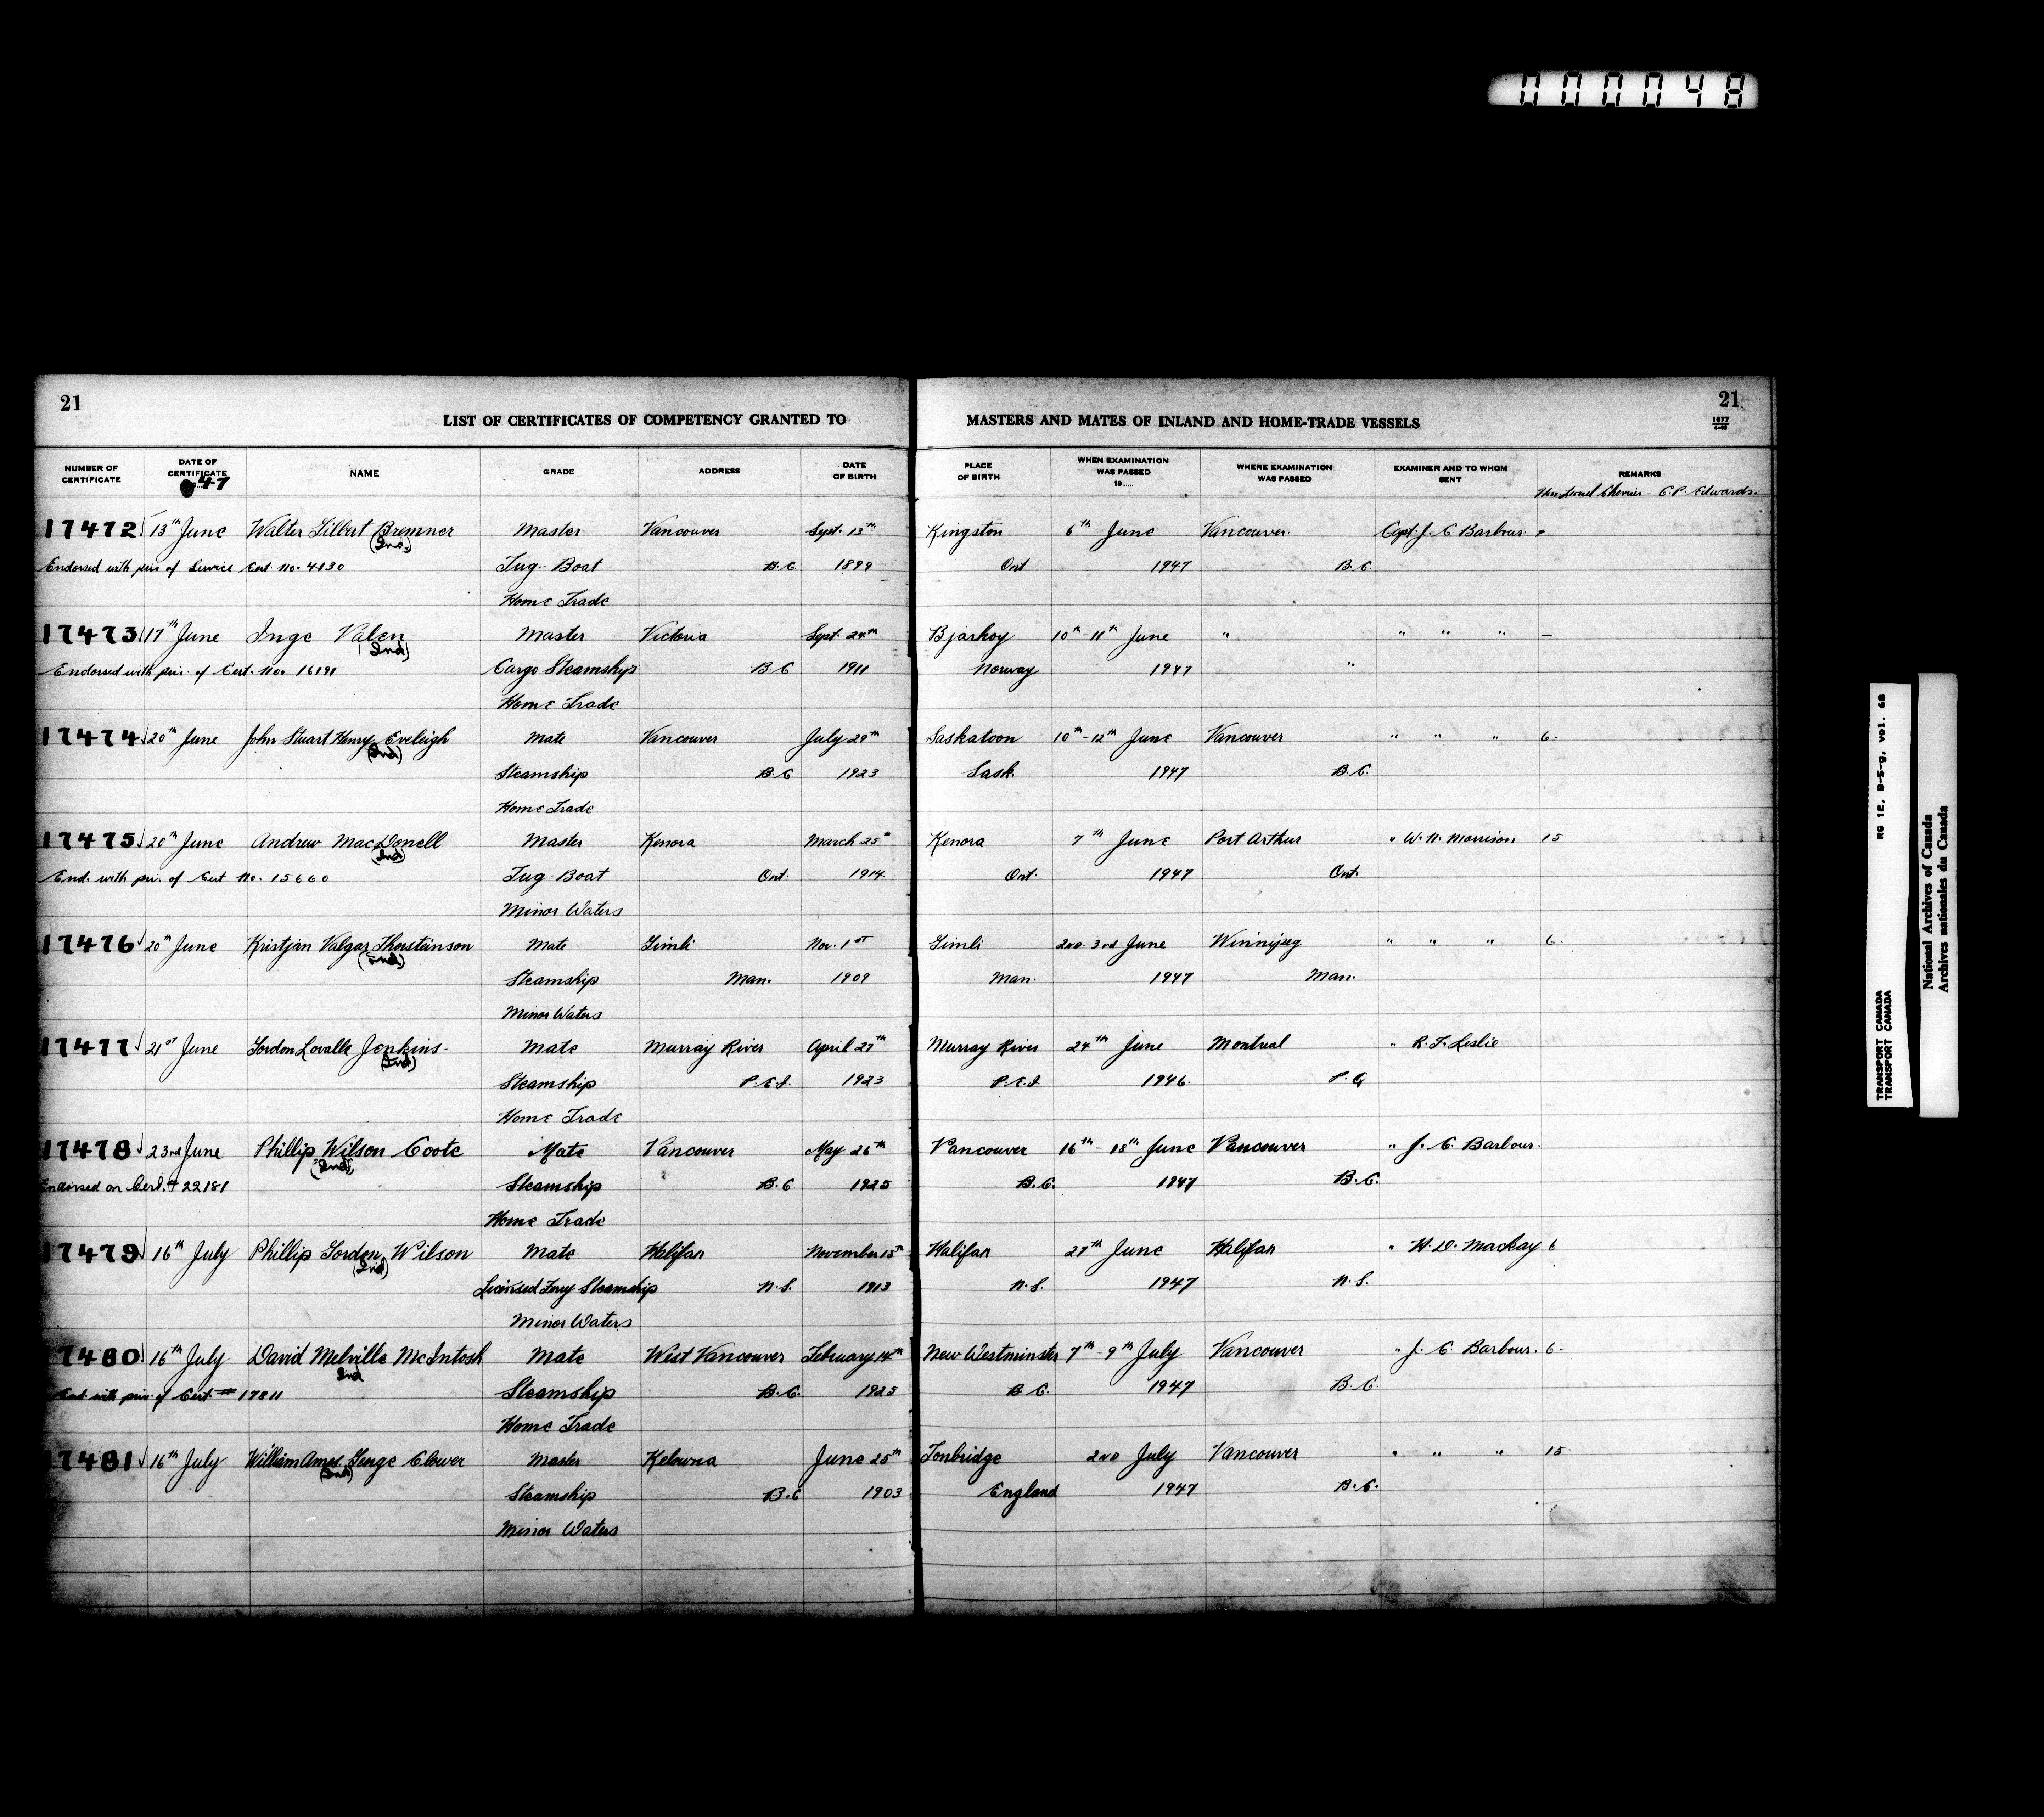 000048
21
21
LIST OF CERTIFICATES OF COMPETENCY GRANTED TO MASTERS AND MATES OF INLAND AND HOME-TRADE VESSELS
1677
NUMBER OF CERTIFICATE DATE OF CERTIFICATE 47 NAME GRADE ADDRESS DATE OF BIRTH PLACE OF BIRTH WHEN EXAMINATION WAS PASSED 19..... WHERE EXAMINATION WAS PASSED EXAMINER AND TO WHOM SENT REMARKS
Hon Lionel Chevrier - C.P. Edwards.
17472 13th June Walter Gilbert Bremner (Ind.) Master Vancouver Sept. 13th Kingston 6th June Vancouver Capt. J. C. Barbour
Endorsed with priv. of Service Cert. No. 4130 Tug-Boat B.C. 1899 Ont 1947 B.C.
Home Trade
17473 17th June Inge Valen (Ind) Master Victoria Sept. 24th Bjarkoy 10th-11th June " " " " —
Endorsed with priv. of Cert. No. 16191 Cargo Steamships B.C 1911 Norway 1947 "
Home Trade
17474 20th June John Stuart Henry Eveleigh (Ind) Mate Vancouver July 29th Saskatoon 10th-12th June Vancouver " " " 6-
Steamship B.C 1923 Sask. 1947 B.C.
Home Trade
17475 20th June Andrew MacDonell (Ind) Master Kenora March 25th Kenora 7th June Port Arthur " W. N. Morrison 15
End. with priv. of Cert No. 15660 Tug-Boat Ont. 1914 Ont. 1947 Ont.
Minor Waters
17476 20th June Kristjan Valgar Thorsteinson (Ind) Mate Gimli Nov. 1st Gimli 2nd-3rd June Winnipeg " " " 6.
Steamship Man. 1909 Man. 1947 Man.
Minor Waters
17477 21st June Gordon Lavalle Jenkins (Ind) Mate Murray River April 27th Murray River 24th June Montreal " R. F. Leslie
Steamship P.E.I. 1923 P.E.I 1946. P.Q
Home Trade
17478 23rd June Phillip Wilson Coote (Ind) Mate Vancouver May 26th Vancouver 16th-18th June Vancouver " J. C. Barbour.
Endorsed on Cert. # 22181 Steamship B.C 1925 B.C. 1947 B.C.
Home Trade
17479 16th July Phillip Gordon Wilson (Ind) Mate Halifax November 15th Halifax 27th June Halifax " H. D. Mackay 6
Licensed Ferry Steamship N.S. 1913 N.S. 1947 N.S.
Minor Waters
17480 16th July David Melville McIntosh Ind Mate West Vancouver February 14th New Westminster 7th-9th July Vancouver " J. C. Barbour. 6-
End. with priv. of Cert. # 17811 Steamship B.C. 1925 B.C. 1947 B.C.
Home Trade
17481 16th July William Ames George Clower (Ind) Master Kelowna June 25th Tonbridge 2nd July Vancouver " " " 15-
Steamship B.C 1903 England 1947 B.C.
Minor Waters
TRANSPORT CANADA RG 12, B-5-g, vol. 68
TRANSPORT CANADA
National Archives of Canada
Archives nationales du Canada